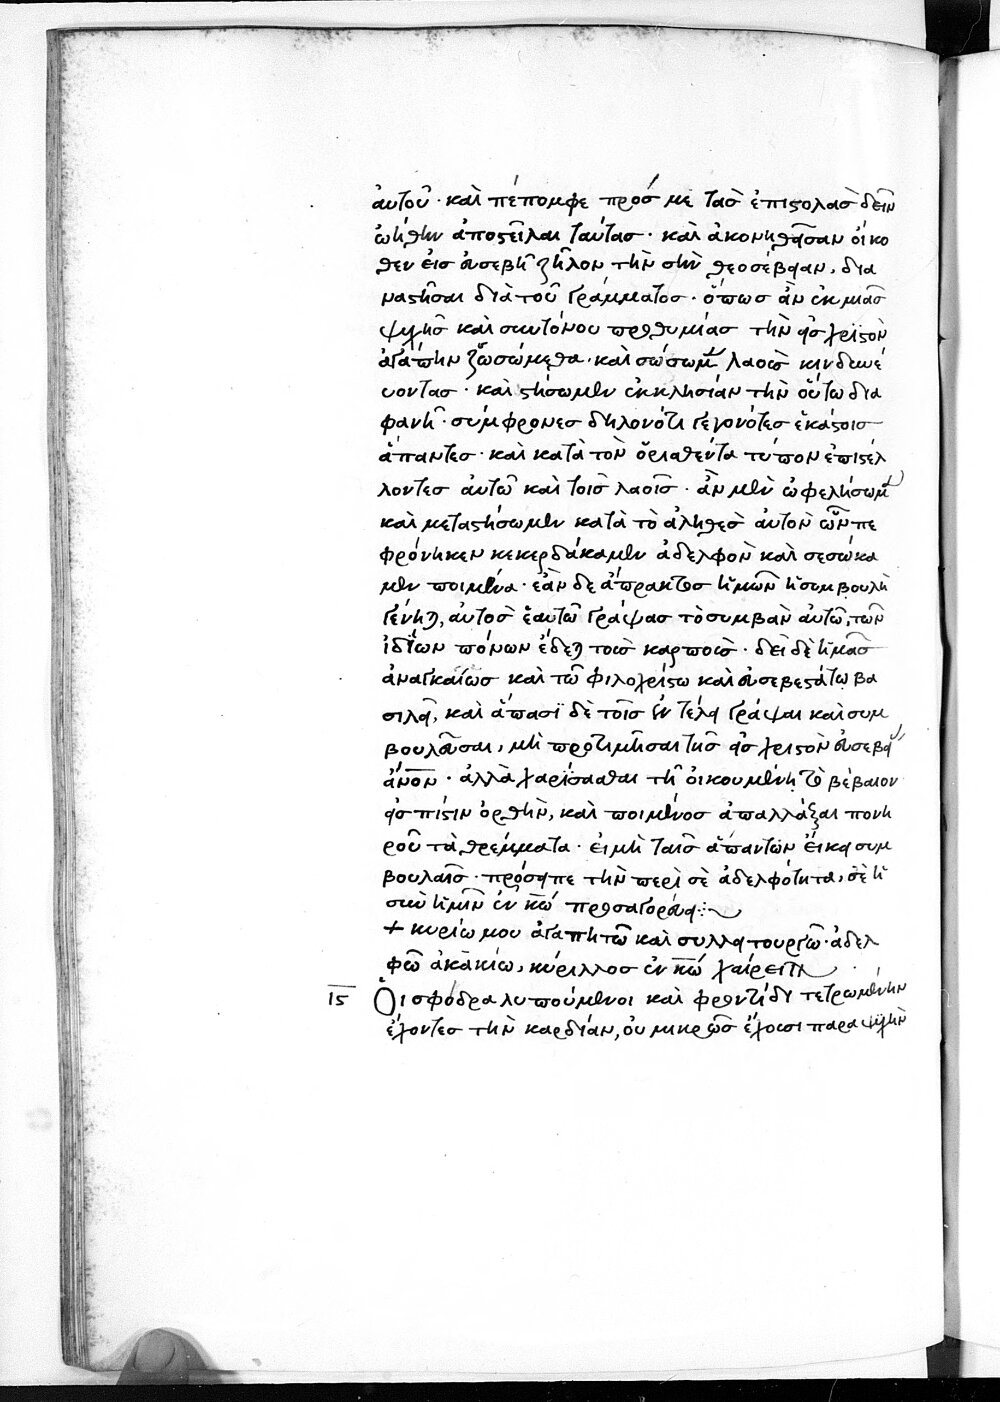 ἀυτοῦ · καὶ πέπομφε πρός με τὰσ ἐπιστολὰσ δεῖν
ᾠήθην ἀποστεῖλαι ταύτασ · καὶ ἀκονηθᾶσαν ὀίκο
θεν ἐισ ἐυσεβῆ ζῆλον τὴν σὴν θεοσέβειαν, δια
ναστῆσαι διὰ τοῦ γράμματοσ · ὅπωσ ἂν ἐκ μιᾶσ
ψυχῆσ καὶ συντόνου προθυμίασ τὴν εἰσ χριστὸν
ἀγάπην ζωσώμεθα · καὶ σώσωμεν λαοὺσ κινδυνέ
υοντασ · καὶ στήσωμεν ἐκκλησίαν τὴν οὕτω δια
φανῆ · σύμφρονεσ δηλονότι γεγονότεσ ἑκάστοισ
ἅπαντεσ · καὶ κατὰ τὸν ὁρισθέντα τύπον ἐπιστέλ
λοντεσ ἀυτῶ καὶ τοῖσ λαοῖσ · ἂν μὲν ὠφελήσωμεν
καὶ μεταστήσωμεν κατὰ τὸ ἀληθὲσ ἀυτὸν ὧν πε
φρόνηκεν κεκερδάκαμεν ἀδελφὸν καὶ σεσώκα
μεν ποιμένα · ἐὰν δε ἄπρακτοσ ἡμῶν ἡ συμβουλὴ
γένηται, ἀυτὸσ ἑαυτῶ γράψασ τὸ συμβὰν ἀυτῶ, τῶν
ἰδίων πόνων ἔδεται τοὺσ καρποὺσ · δεῖ δὲ ἡμᾶσ
ἀναγκαίωσ καὶ τῶ φιλοχρίστω καὶ ἐυσεβεστάτω βα
σιλεῖ, καὶ ἅπασϊ δὲ τοῖσ ἐν τέλει γράψαι καὶ συμ
βουλεῦσαι, μὴ προτιμῆσαι τῆσ εἰσ χριστὸν ἐυσεβείασ
ἄνον · ἀλλὰ χαρίσασθαι τῆ ὀικουμένη τὸ βέβαιον
εἰσ πίστιν ὀρθὴν, καὶ ποιμένοσ ἀπαλλάξαι πονη
ροῦ τὰ θρέμματα · ἐι μὴ ταῖσ ἁπάντων ἔικει συμ
βουλαῖσ · πρόσειπε τὴν περὶ σὲ ἀδελφότητα, σὲ ἡ
σὺν ἡμῖν ἐν κῶ προσαγορεύει
+ κυρίω μου ἀγαπητῶ καὶ συλλειτουργῶ · ἀδελ
φῶ ἀκακίω, κύριλλοσ ἐν κῶ χαίρειν
ιϛ Ὁι σφόδρα λυπούμενοι καὶ φροντίδι τετρωμένην
ἔχοντεσ τὴν καρδίαν, ὀυ μικρῶσ ἔχουσι παραψυχὴν